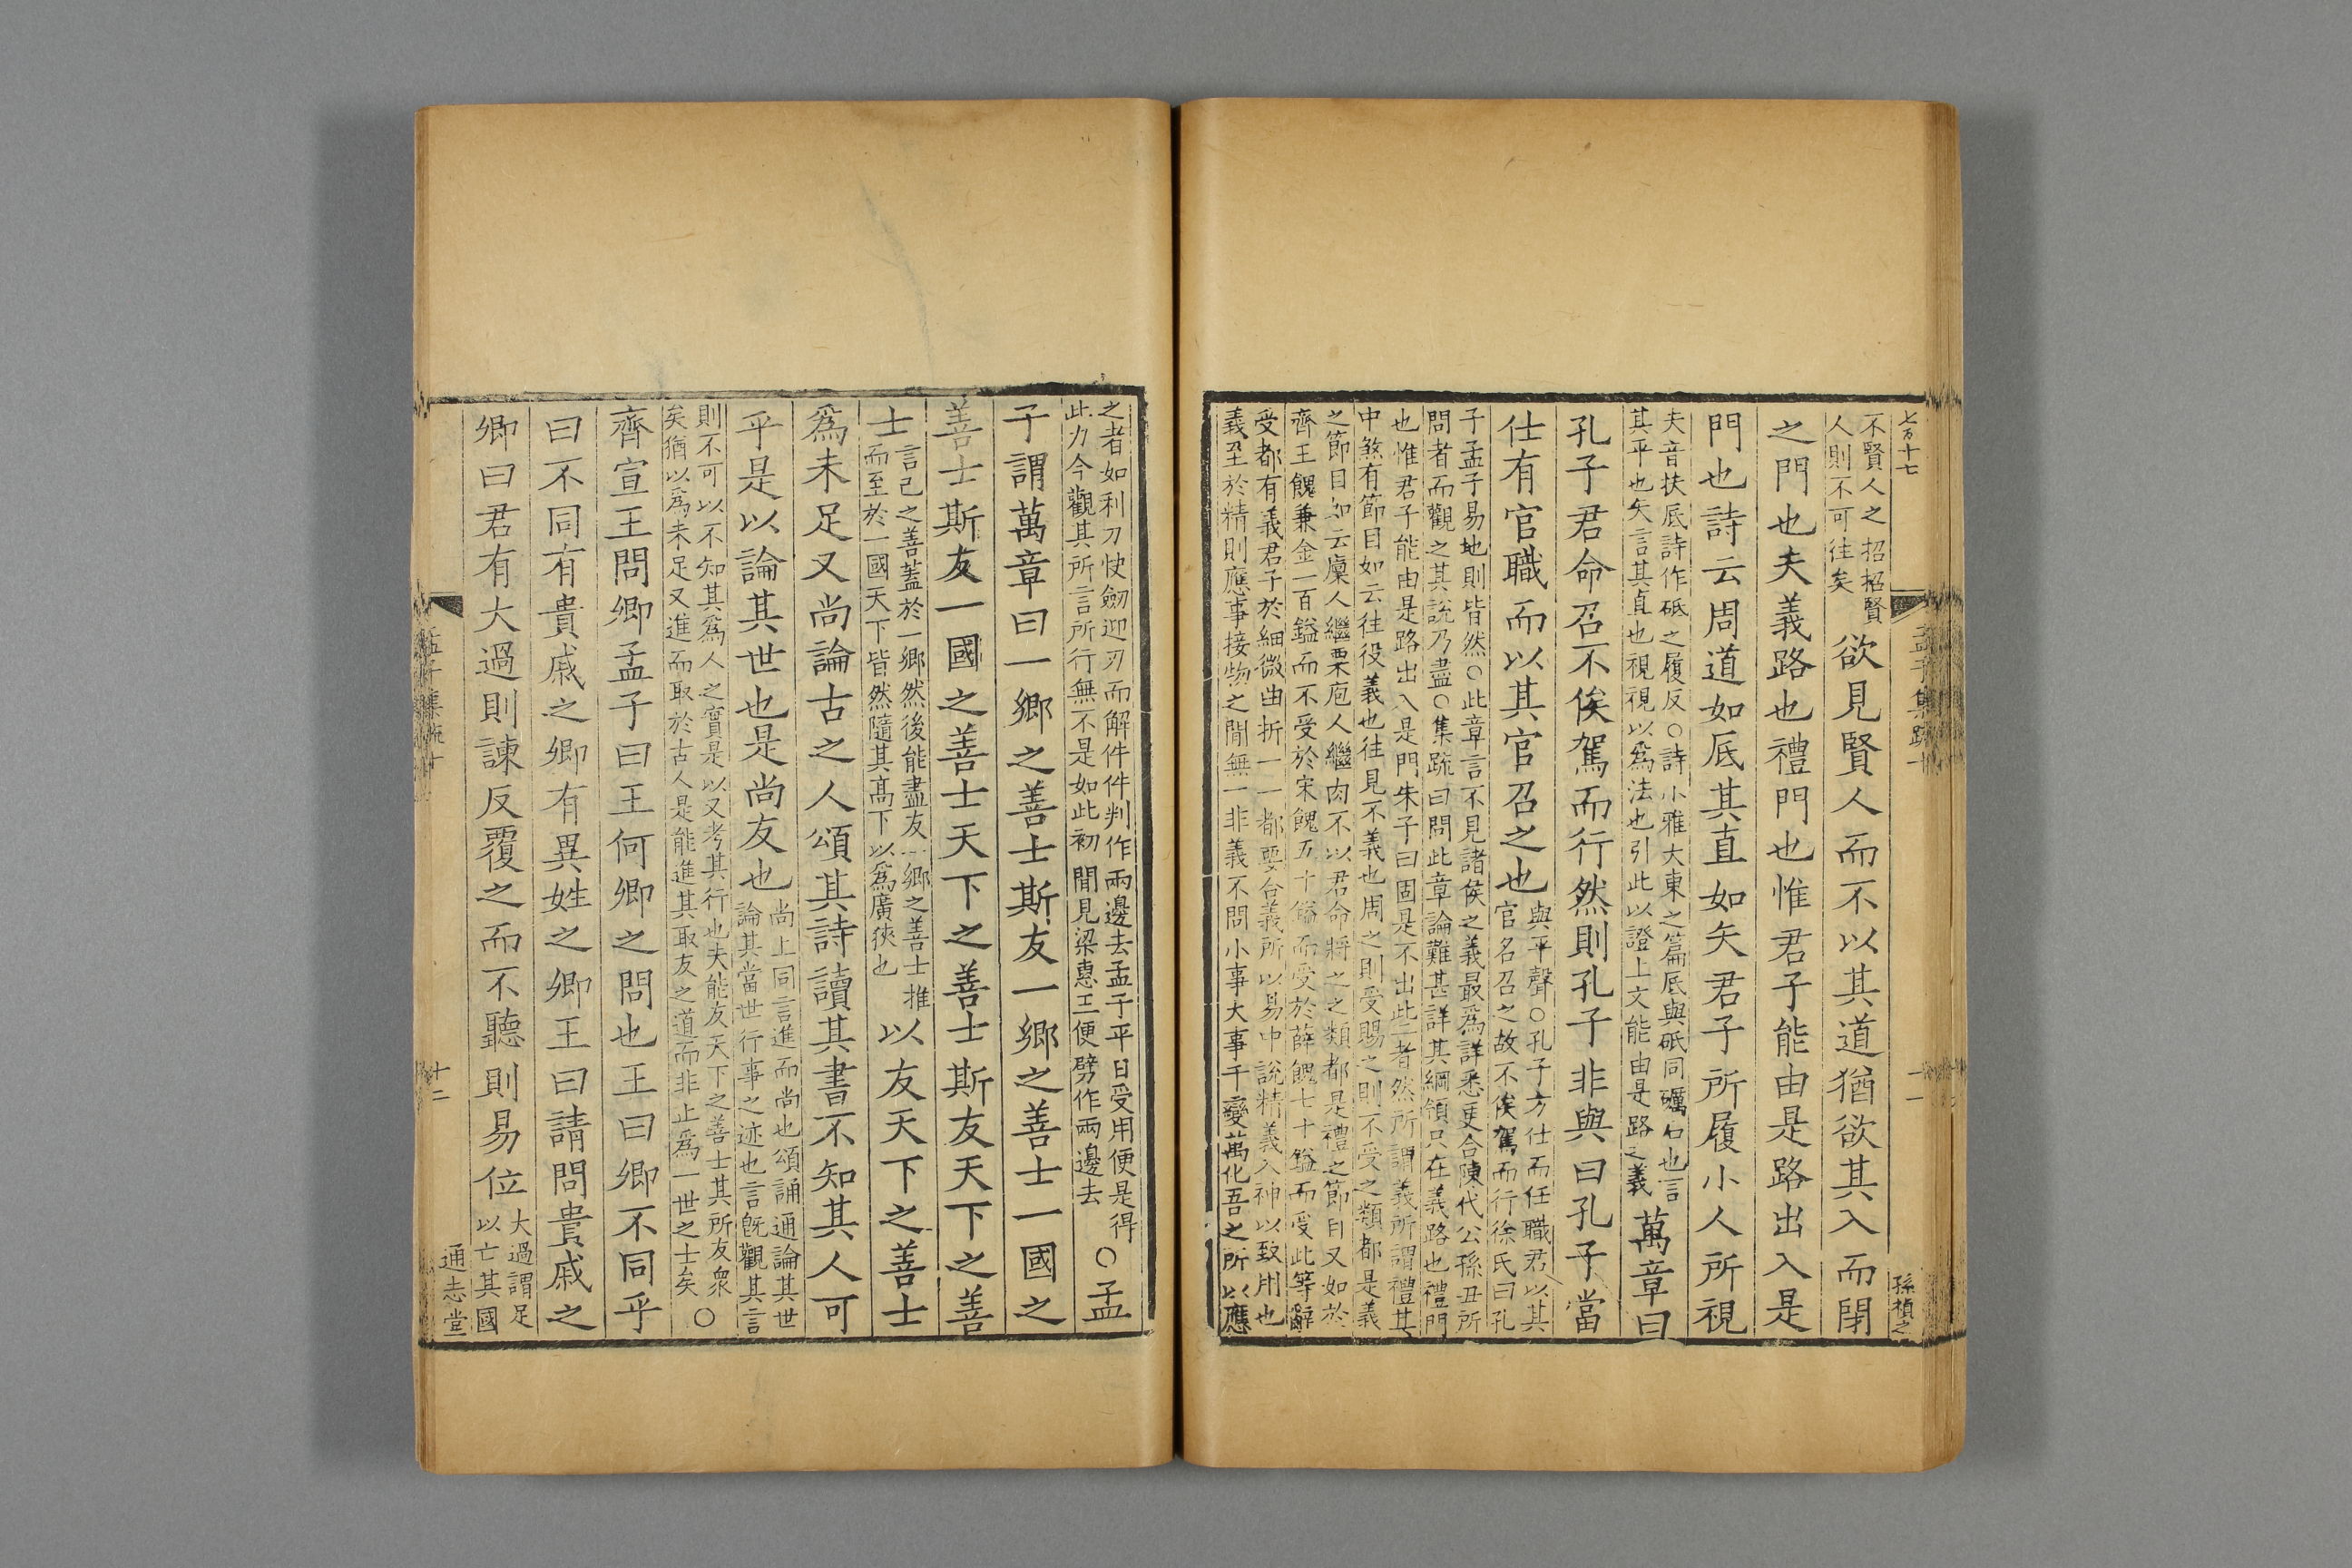 七百十七
孟子集疏十
十一
孫楨之
不賢人之招招賢
人則不可往矣
欲見賢人而不以其道猶欲其入而閉
之門也夫義路也禮門也惟君子能由是路出入是
門也詩云周道如底其直如矢君子所履小人所視
夫音扶底詩作砥之履反○詩小雅大東之篇底與砥同礪石也言
其平也矢言其直也視視以為法也引此以證上文能由是路之義
萬章曰
孔子君命召不俟駕而行然則孔子非與曰孔子當
仕有官職而以其官召之也
與平聲○孔子方仕而任職君以其
官名召之故不俟駕而行徐氏曰孔
子孟子易地則皆然○此章言不見諸侯之義最為詳悉更合陳代公孫丑所
問者而觀之其說乃盡○集疏曰問此章論難甚詳其綱領只在義路也禮門
也惟君子能由是路出入是門朱子曰固是不出此二者然所謂義所謂禮其
中煞有節目如云往役義也往見不義也周之則受賜之則不受之類都是義
之節目如云廩人繼粟庖人繼肉不以君命將之之類都是禮之節目又如於
齊王餽兼金一百鎰而不受於宋餽五十鎰而受於薛餽七十鎰而受此等辭
受都有義君子於細微曲折一一都要合義所以易中說精義入神以致用也
義至於精則應事接物之間無一非義不問小事大事千變萬化吾之所以應
之者如利刀快劒迎刃而解件件判作兩邊去孟子平日受用便是得
此力今觀其所言所行無不是如此初間見梁惠王便劈作兩邊去
○孟
子謂萬章曰一鄉之善士斯友一鄉之善士一國之
善士斯友一國之善士天下之善士斯友天下之善
士
言己之善蓋於一鄉然後能盡友一鄉之善士推
而至於一國天下皆然隨其高下以為廣狹也
以友天下之善士
為未足又尚論古之人頌其詩讀其書不知其人可
乎是以論其世也是尚友也
尚上同言進而尚也頌誦通論其世
論其當世行事之迹也言既觀其言
則不可以不知其為人之實是以又考其行也夫能友天下之善士其所友衆
矣猶以為未足又進而取於古人是能進其取友之道而非止為一世之士矣
○
齊宣王問卿孟子曰王何卿之問也王曰卿不同乎
曰不同有貴戚之卿有異姓之卿王曰請問貴戚之
卿曰君有大過則諫反覆之而不聽則易位
大過謂足
以亡其國
孟子集疏十
十二
通志堂